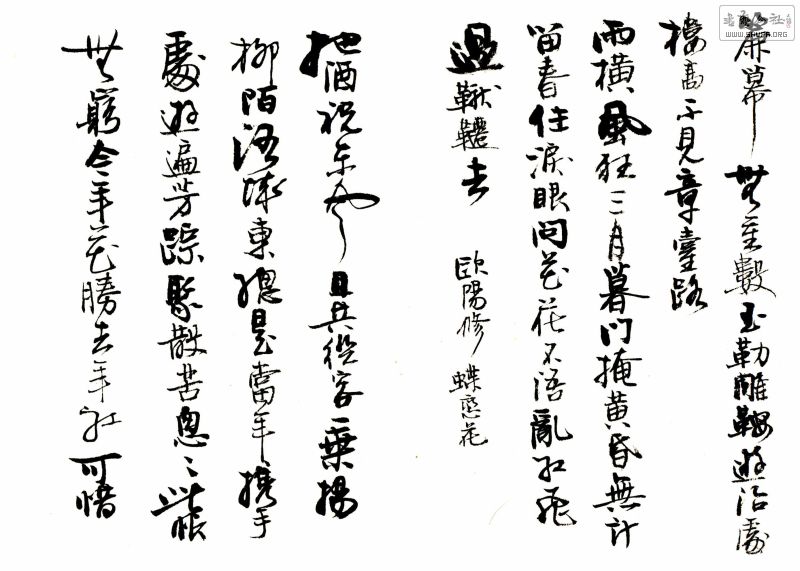 幕無重數玉勒雕鞍遊冶處
樓高不見章臺路
雨橫風狂三月暮門掩黃昏無計
留春住淚眼問花花不語亂紅飛
過鞦韆去 歐陽修 蝶戀花
把酒祝東風且共從容垂楊
柳陌洛城東總是當年攜手
處遊遍芳踪聚散苦怱〻此恨
無窮今年花勝去年紅可惜
WWW.SHUFA.ORG